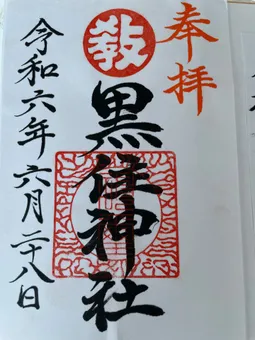 奉拝
教
黒住神社
令和六年六月二十八日